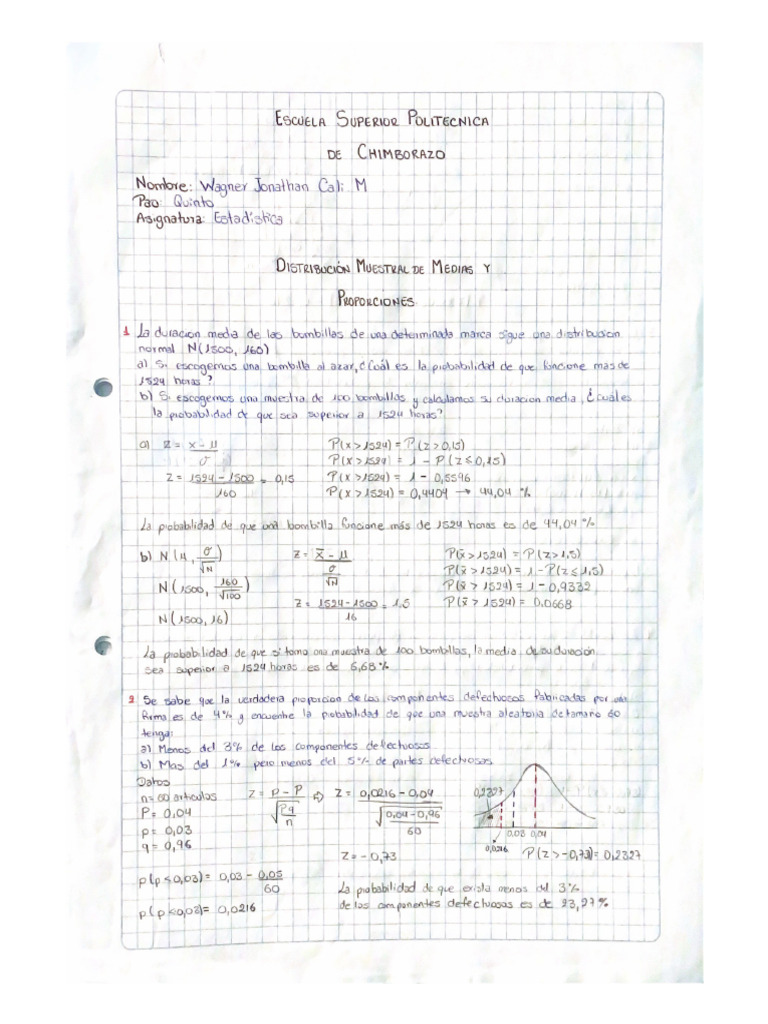 ESCUELA SUPERIOR POLITECNICA
DE CHIMBORAZO
Nombre: Wagner Jonathan Cali M
Pao: Quinto
Asignatura: Estadística
DISTRIBUCIÓN MUESTRAL DE MEDIAS Y
PROPORCIONES
1 La duracion media de las bombillas de una determinada marca sigue una distribucion
normal N(1500, 160)
a) Si escogemos una bombilla al azar, ¿Cuál es la probabilidad de que funcione mas de
1524 horas?
b) Si escogemos una muestra de 100 bombillas y calculamos su duracion media, ¿cuál es
la probabilidad de que sea superior a 1524 horas?
a) Z = x - μ / σ
Z = 1524 - 1500 / 160 = 0,15
P(x > 1524) = P(z > 0,15)
P(x > 1524) = 1 - P(z ≤ 0,15)
P(x > 1524) = 1 - 0,5596
P(x > 1524) = 0,4404 → 44,04 %
La probabilidad de que una bombilla funcione más de 1524 horas es de 44,04 %
b) N(μ, σ/√N)
N(1500, 160/√100)
N(1500, 16)
Z = x̄ - μ / σ/√N
Z = 1524 - 1500 / 16 = 1.5
P(x̄ > 1524) = P(z > 1,5)
P(x̄ > 1524) = 1 - P(z ≤ 1,5)
P(x̄ > 1524) = 1 - 0,9332
P(x̄ > 1524) = 0.0668
La probabilidad de que si tomo una muestra de 100 bombillas, la media de su duración
sea superior a 1524 horas es de 6,68 %
2 Se sabe que la verdadera proporcion de los componentes defectuosos fabricadas por una
firma es de 4% y encuentre la probabilidad de que una muestra aleatoria de tamaño 60
tenga:
a) Menos del 3% de los componentes defectuosos
b) Mas del 1% pero menos del 5% de partes defectuosas
Datos
n = 60 articulos
P = 0,04
p = 0,03
q = 0,96
Z = p - P / √(Pq/n) ⇒ Z = 0,0216 - 0,04 / √(0,04-0,96/60)
Z = -0,73
0,2327
0,03 0,04
0,0216
P(Z > -0,73) = 0,2327
p(p ≤ 0,03) = 0,03 - 0,05/60
p(p < 0,03) = 0,0216
La probabilidad de que exista menos del 3%
de los componentes defectuosos es de 23,27%